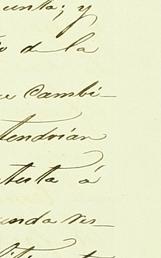 unta; y
o de la
e cambi-
tendrian
testa á
unda res-